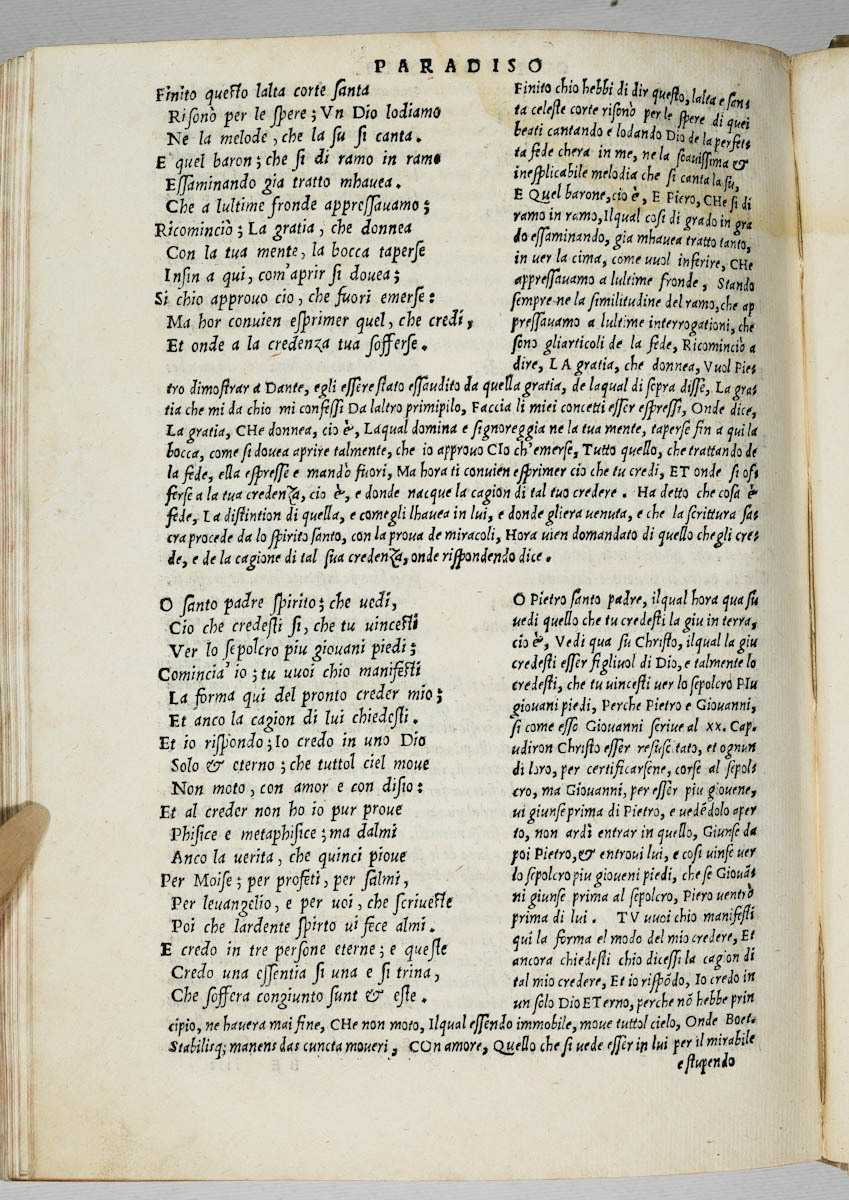 PARADISO
Finito questo lalta corte santa
Risonò per le spere; Vn Dio lodiamo
Ne la melode, che la su si canta.
E quel baron; che si di ramo in ramo
Essaminando gia tratto mhauea.
Che a lultime fronde appressauamo;
Ricominciò; La gratia, che donnea
Con la tua mente, la bocca taperse
Insin a qui, com'aprir si douea;
Si chio approuo cio, che fuori emerse:
Ma hor conuien esprimer quel, che credi,
Et onde a la credenza tua sofferse.
Finito chio hebbi di dir questo, lalta e san-
ta celeste corte risonò per le spere di quei
beati cantando e lodando Dio de la perfet-
ta fede chera in me, ne la soauissima &
inesplicabile melodia che si canta la su,
E Quel barone, cio è, E Piero, CHe si di
ramo in ramo, Ilqual cosi di grado in gra
do essaminando, gia mhauea tratto tanto,
in uer la cima, come uuol inferire, CHe
appressauamo a lultime fronde, Stando
sempre ne la similitudine del ramo, che ap
pressauamo a lultime interrogationi, che
sono gliarticoli de la fede, Ricominciò a
dire, LA gratia, che donnea, Vuol Pie-
tro dimostrar a Dante, egli essere stato essaudito da quella gratia, de laqual di sopra disse, La gra-
tia che mi da chio mi confessi Da laltro primipilo, Faccia li miei concetti esser espressi, Onde dice,
La gratia, CHe donnea, cio è, Laqual domina e signoreggia ne la tua mente, taperse fin a qui la
bocca, come si douea aprire talmente, che io approuo CIo ch'emerse, Tutto quello, che trattando de
la fede, ella espresse e mandò fuori, Ma hora ti conuien esprimer cio che tu credi, ET onde si of-
ferse a la tua credenza, cio è, e donde nacque la cagion di tal tuo credere. Ha detto che cosa è
fede, La distintion di quella, e come gli lhauea in lui, e donde gliera uenuta, e che la scrittura sa-
cra procede da lo spirito santo, con la proua de miracoli, Hora uien domandato di quello chegli cre-
de, e de la cagione di tal sua credenza, onde rispondendo dice.
O santo padre spirito; che uedi,
Cio che credesti si, che tu uincesti
Ver lo sepolcro piu giouani piedi;
Comincia' io; tu uuoi chio manifesti
La forma qui del pronto creder mio;
Et anco la cagion di lui chiedesti.
Et io rispondo; Io credo in uno Dio
Solo & eterno; che tuttol ciel moue
Non moto, con amor e con disio:
Et al creder non ho io pur proue
Phisice e metaphisice; ma dalmi
Anco la uerita, che quinci pioue
Per Moise; per profeti, per salmi,
Per leuangelio, e per uoi, che scriueste
Poi che lardente spirto ui fece almi.
E credo in tre persone eterne; e queste
Credo una essentia si una e si trina,
Che soffera congiunto sunt & este.
O Pietro santo padre, ilqual hora qua su
uedi quello che tu credesti la giu in terra,
cio è, Vedi qua su Christo, ilqual la giu
credesti esser figliuol di Dio, e talmente lo
credesti, che tu uincesti uer lo sepolcro PIu
giouani piedi, Perche Pietro e Giouanni,
si come esso Giouanni scriue al xx. Cap.
udiron Christo esser resuscitato, et ognun
di loro, per certificarsene, corse al sepol-
cro, ma Giouanni, per esser piu giouene,
ui giunse prima di Pietro, e uedēdolo aper
to, non ardì entrar in quello, Giunse da
poi Pietro, & entroui lui, e cosi uinse uer
lo sepolcro piu gioueni piedi, che se Giouā-
ni giunse prima al sepolcro, Piero uentrò
prima di lui. TV uuoi chio manifesti
qui la forma el modo del mio credere, Et
ancora chiedesti chio dicessi la cagion di
tal mio credere, Et io rispōdo, Io credo in
un solo Dio ETerno, perche nō hebbe prin
cipio, ne hauera mai fine, CHe non moto, Ilqual essendo immobile, moue tuttol cielo, Onde Boet.
Stabilisq; manens das cuncta moueri, COn amore, Quello che si uede esser in lui per il mirabile
e stupendo